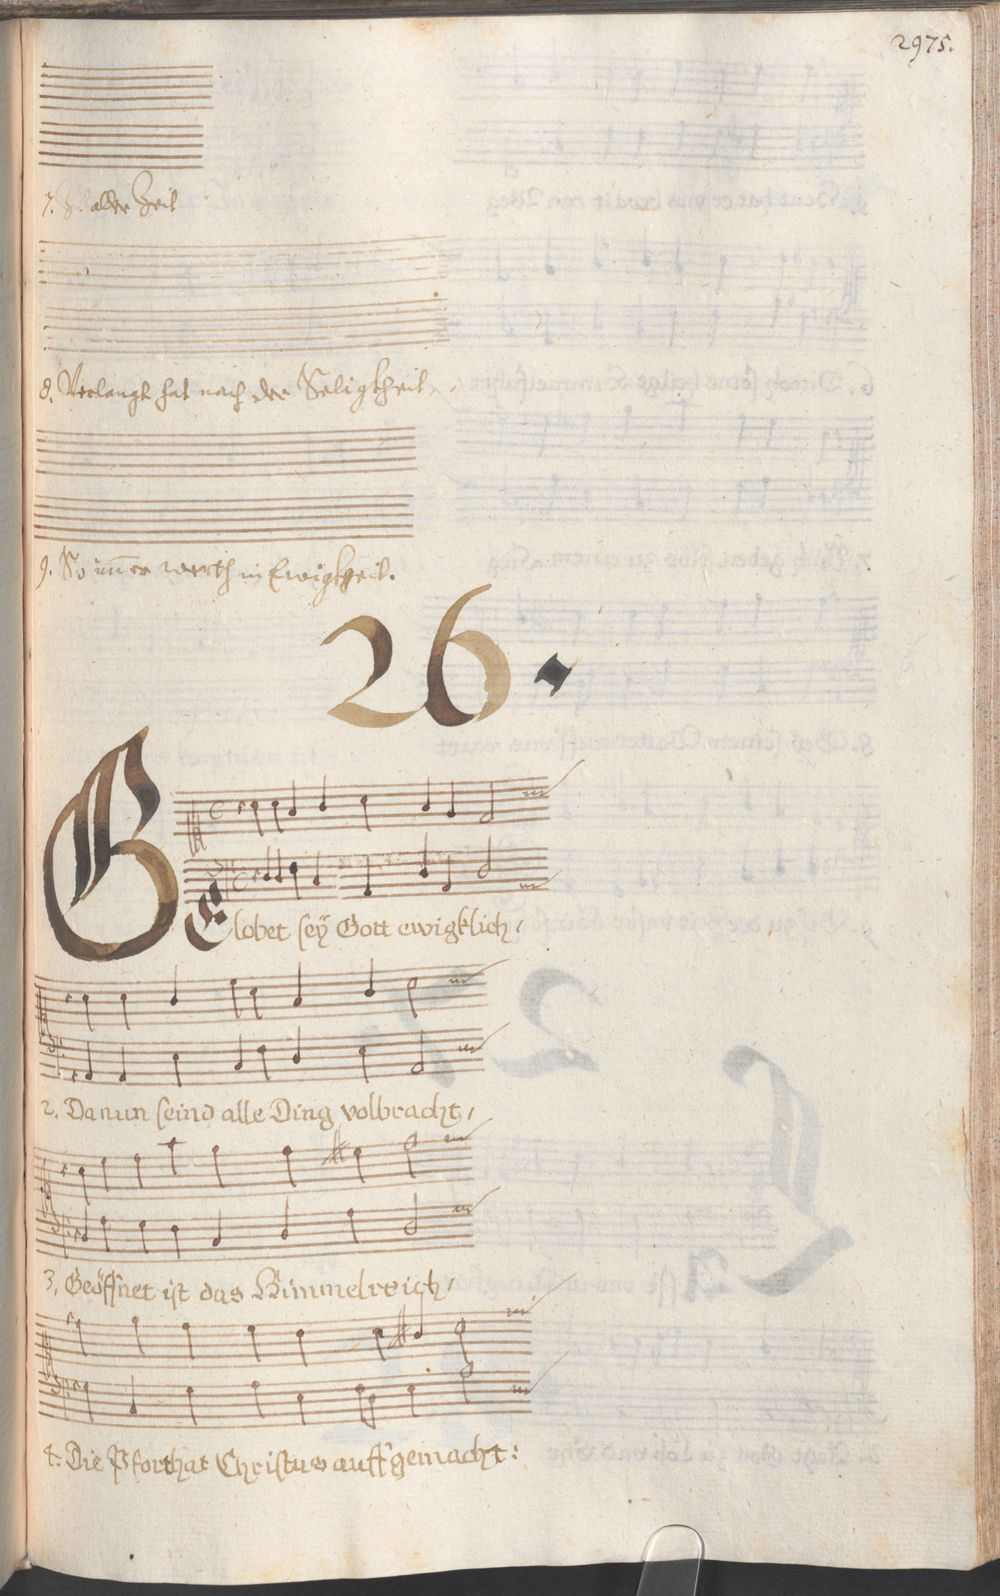 2975.
7. aller Zeit
8. Verlangt hat nach der Seligkheit,
9. So im̃er werth in Ewigkheit.
26.
GElobet seÿ Gott ewigklich,
2. Da nun seind alle Ding volbracht,
3. Geöffnet ist das Himmelreich,
4. Die Pfort hat Christus auff gemacht: